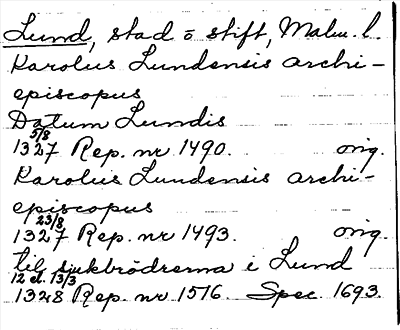 Lund, stad o stift, Malm. l.
Karolus Lundensis archi-
episcopus
Datum Lundis
5/8
1327 Rep. nr 1490. orig.
Karolus Lundensis archi-
episcopus
23/8
1327 Rep. nr 1493. orig.
til siukbrödrema i Lund
12 el. 13/3
1328 Rep. nr 1516. Spec. 1693.